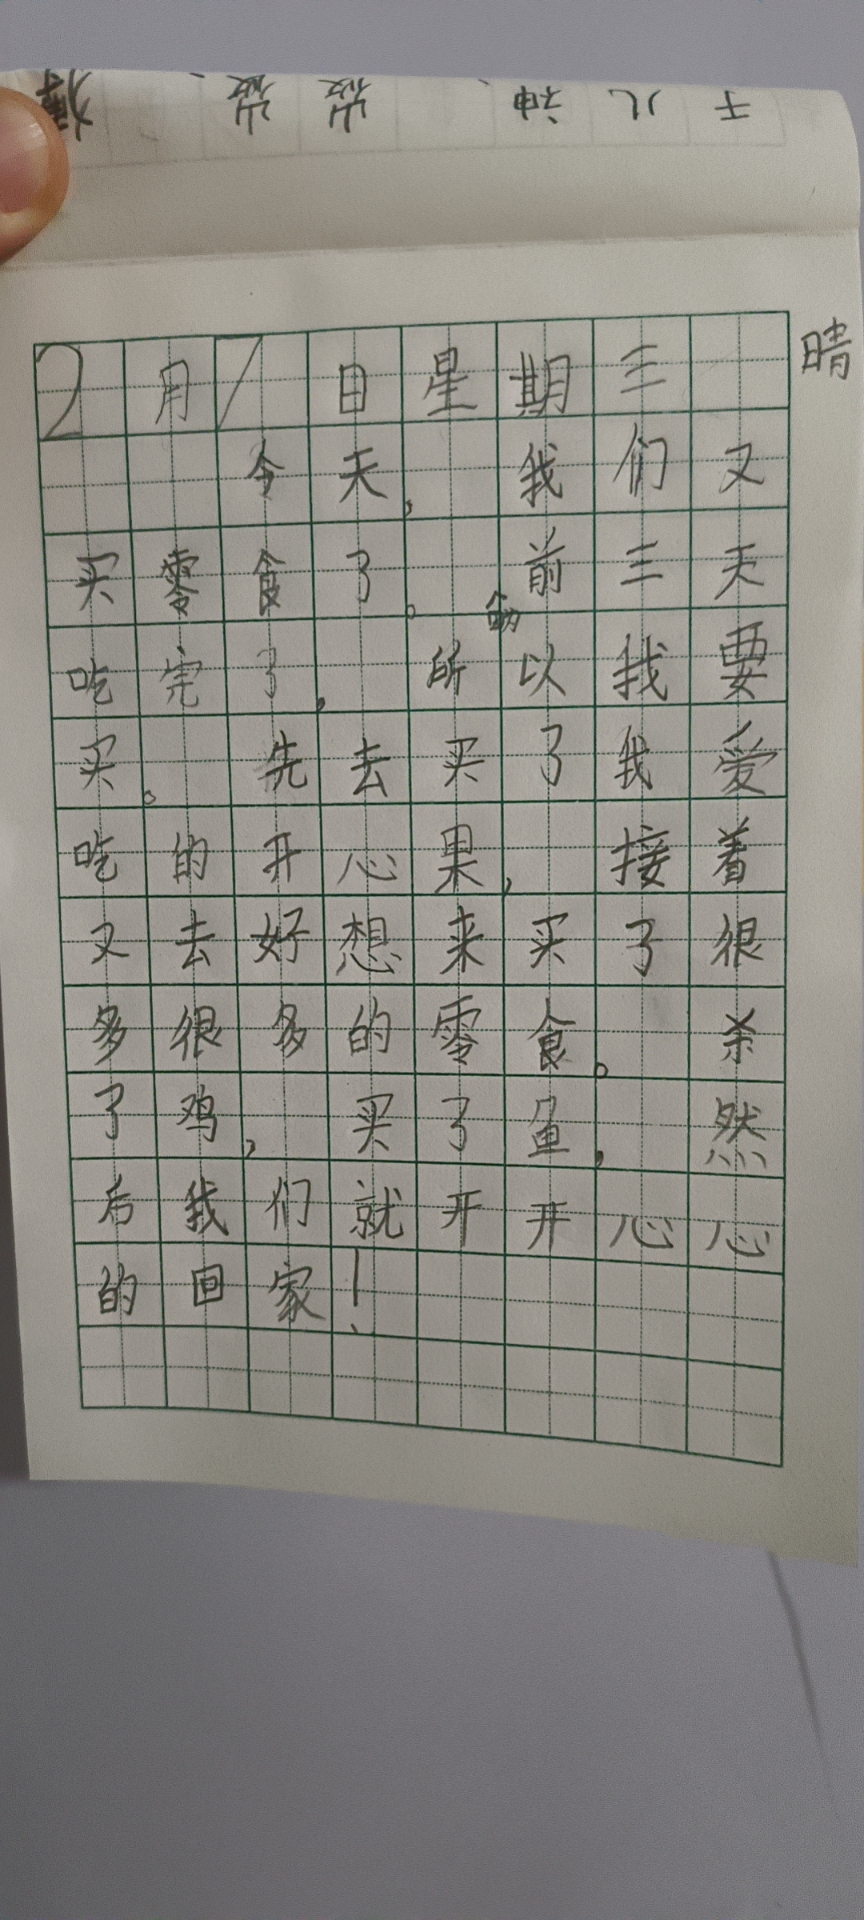 于儿神、岀岀、
2月1日星期三 晴
今天，我们又
买零食了。前三天
吃完了，所以我要
买。先去买了我爱
吃的开心果，接着
又去好想来买了很
多很多的零食。杀
了鸡，买了鱼，然
后我们就开开心心
的回家！